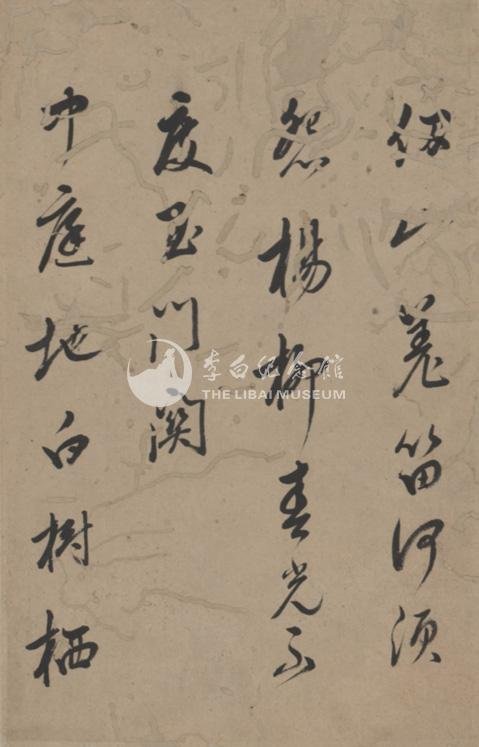 仞山羌笛何須
怨楊柳春光不
度玉門關
中庭地白樹栖
李白纪念馆
THE LIBAI MUSEUM